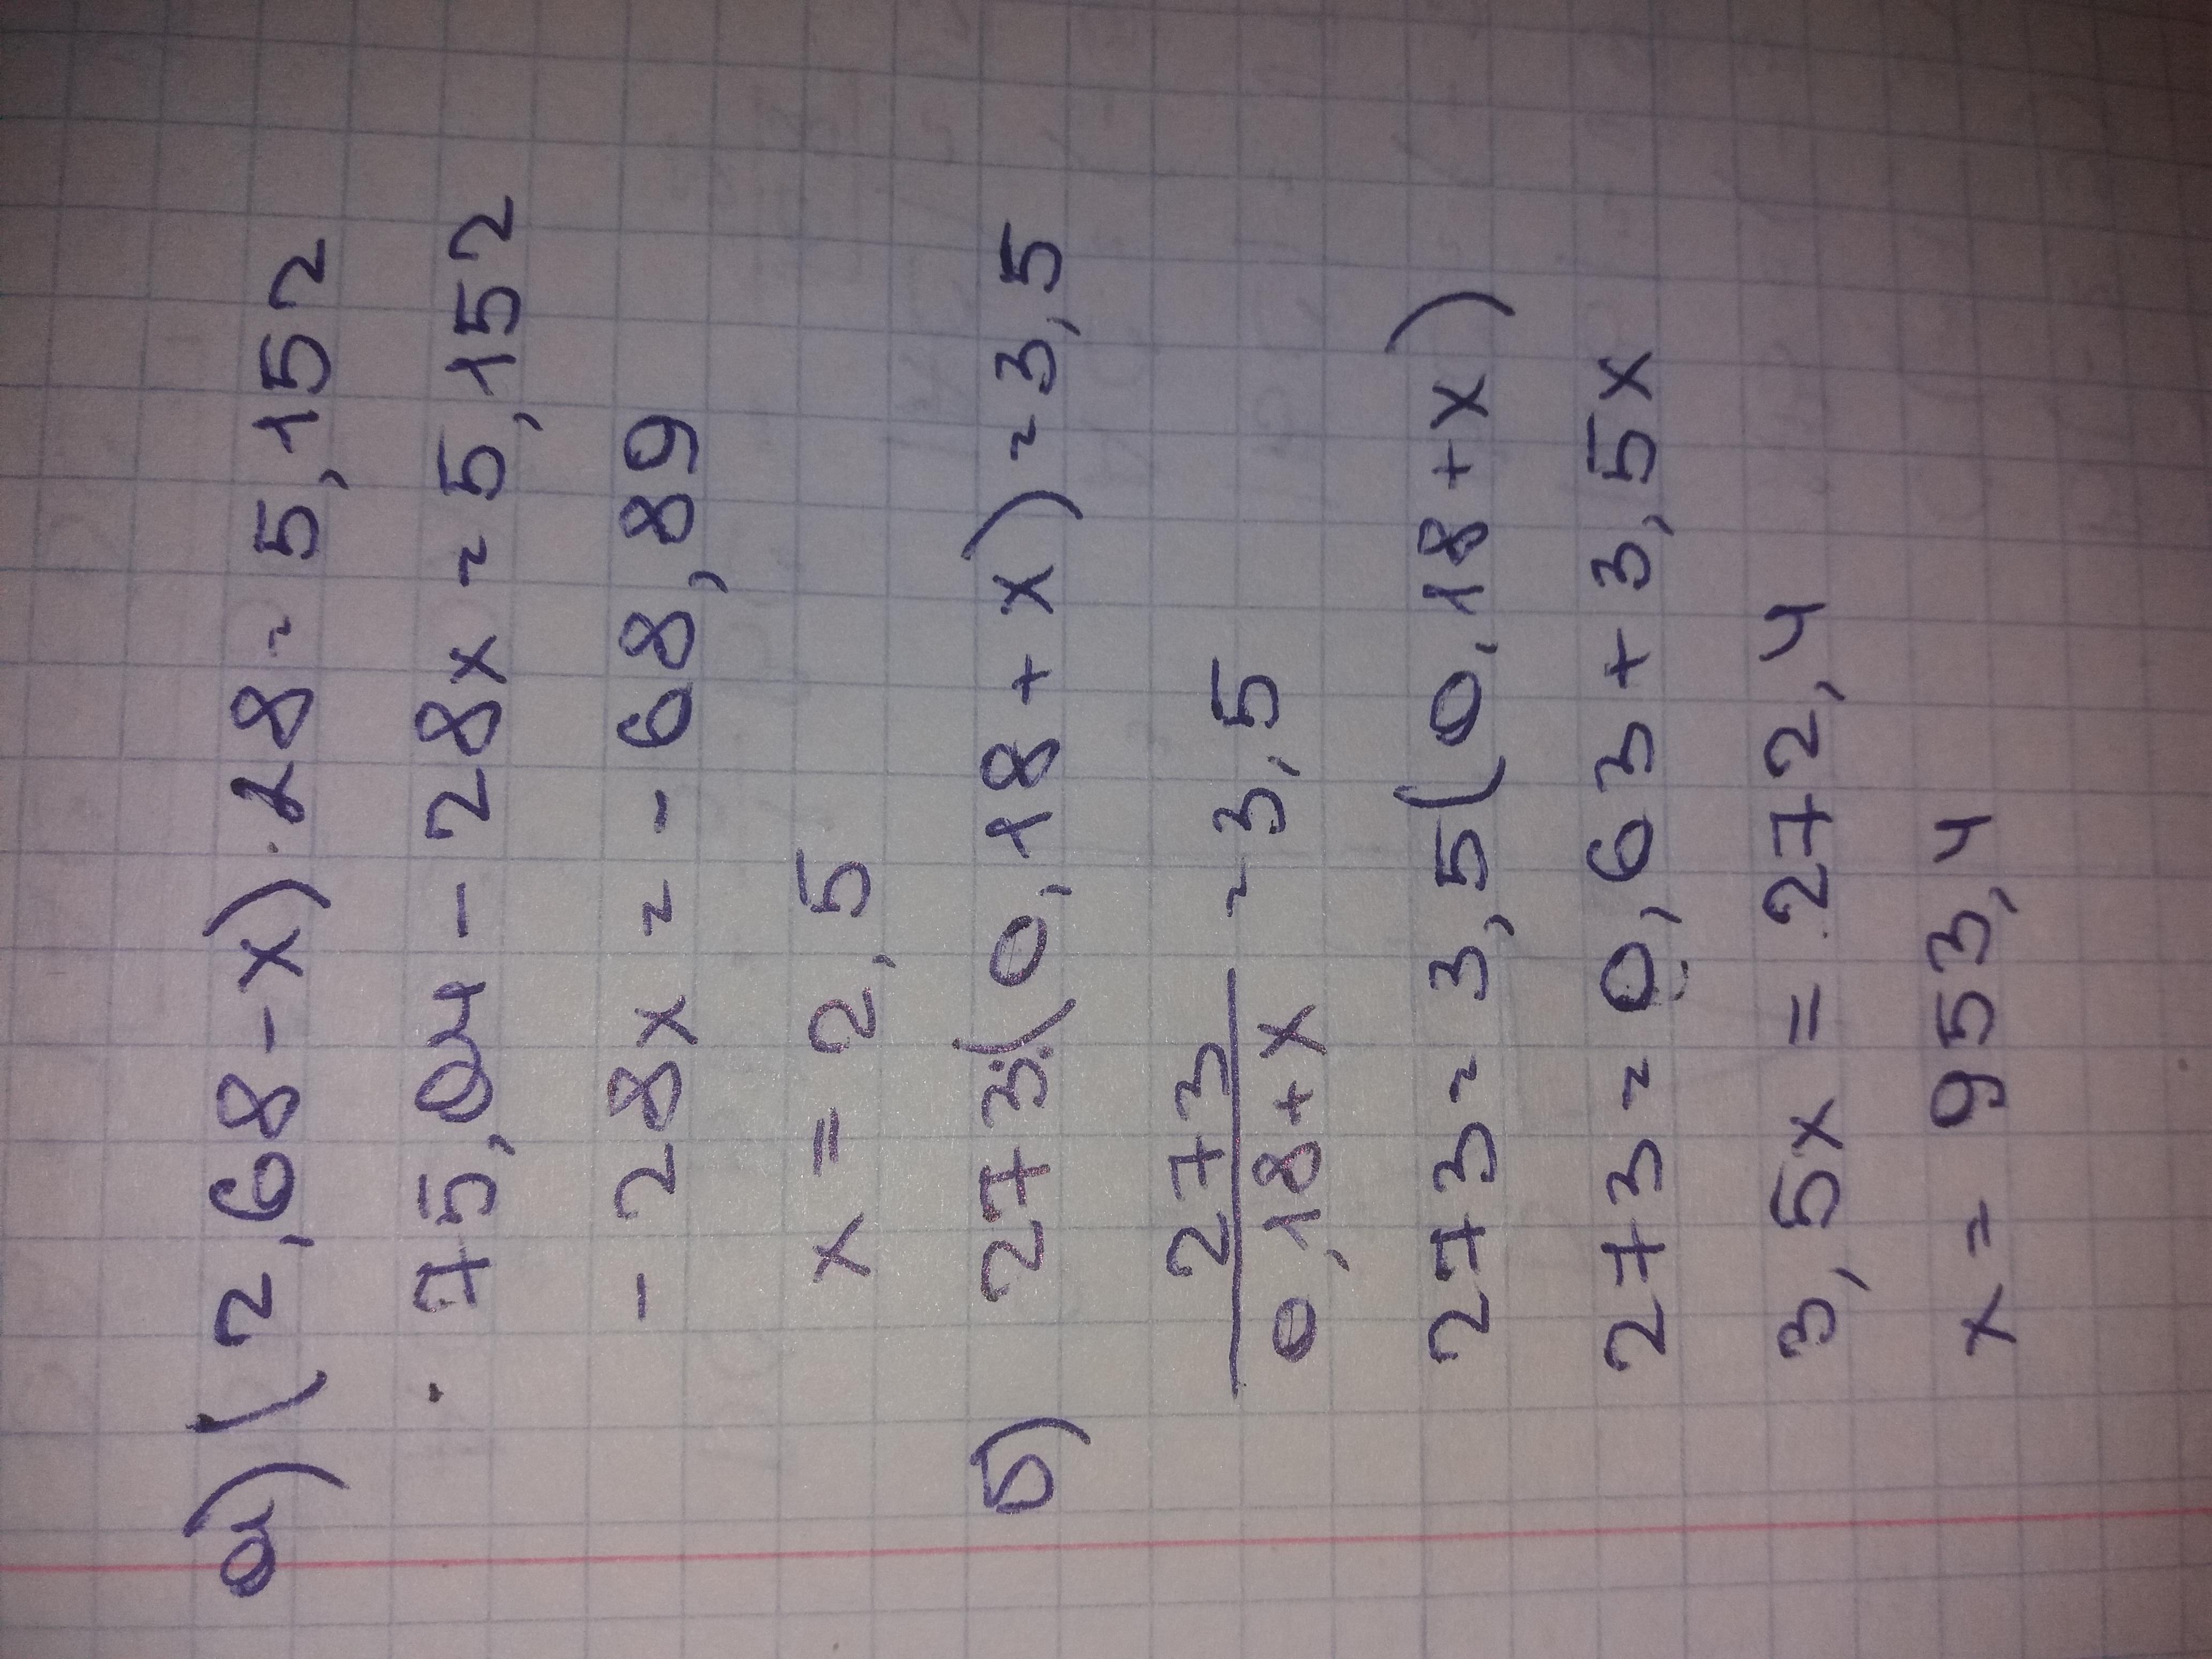 а) (2,68-x)·28=5,152
75,04-28x=5,152
-28x=-68,89
x=2,5
б) 273:(0,18+x)=3,5
273
0,18+x
=3,5
273=3,5(0,18+x)
273=0,63+3,5x
3,5x=272,4
x=953,4